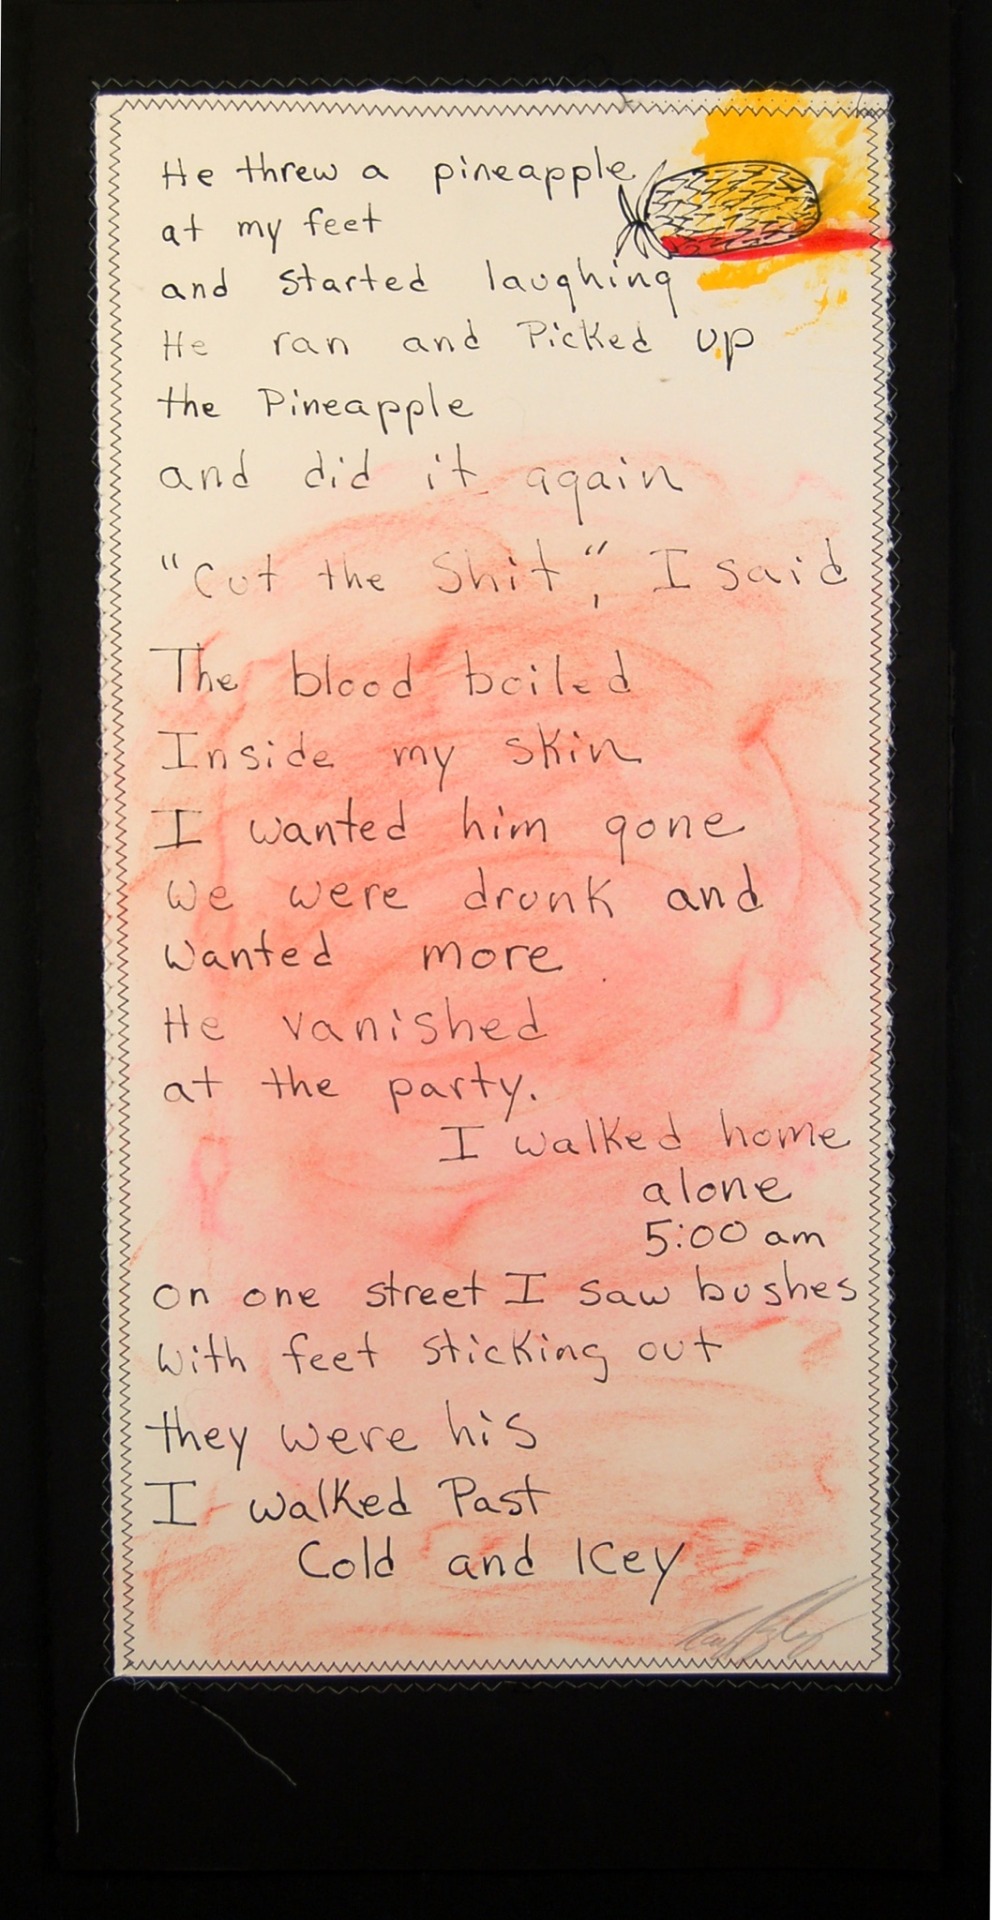 He threw a pineapple
at my feet
and started laughing
He ran and Picked up
the Pineapple
and did it again
"Cut the Shit", I said
The blood boiled
Inside my skin
I wanted him gone
we were drunk and
wanted more
He vanished
at the party.
I walked home
alone
5:00 am
on one street I saw bushes
with feet sticking out
they were his
I walked Past
Cold and Icey